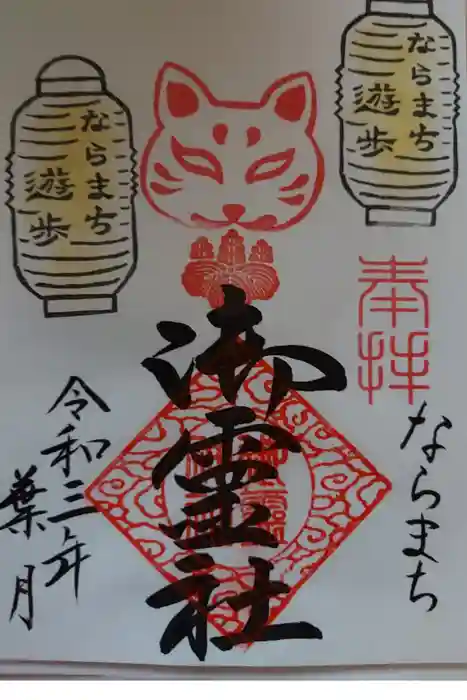 ならまち
遊歩
ならまち
遊歩
奉拝
ならまち
御霊社
令和三年
葉月